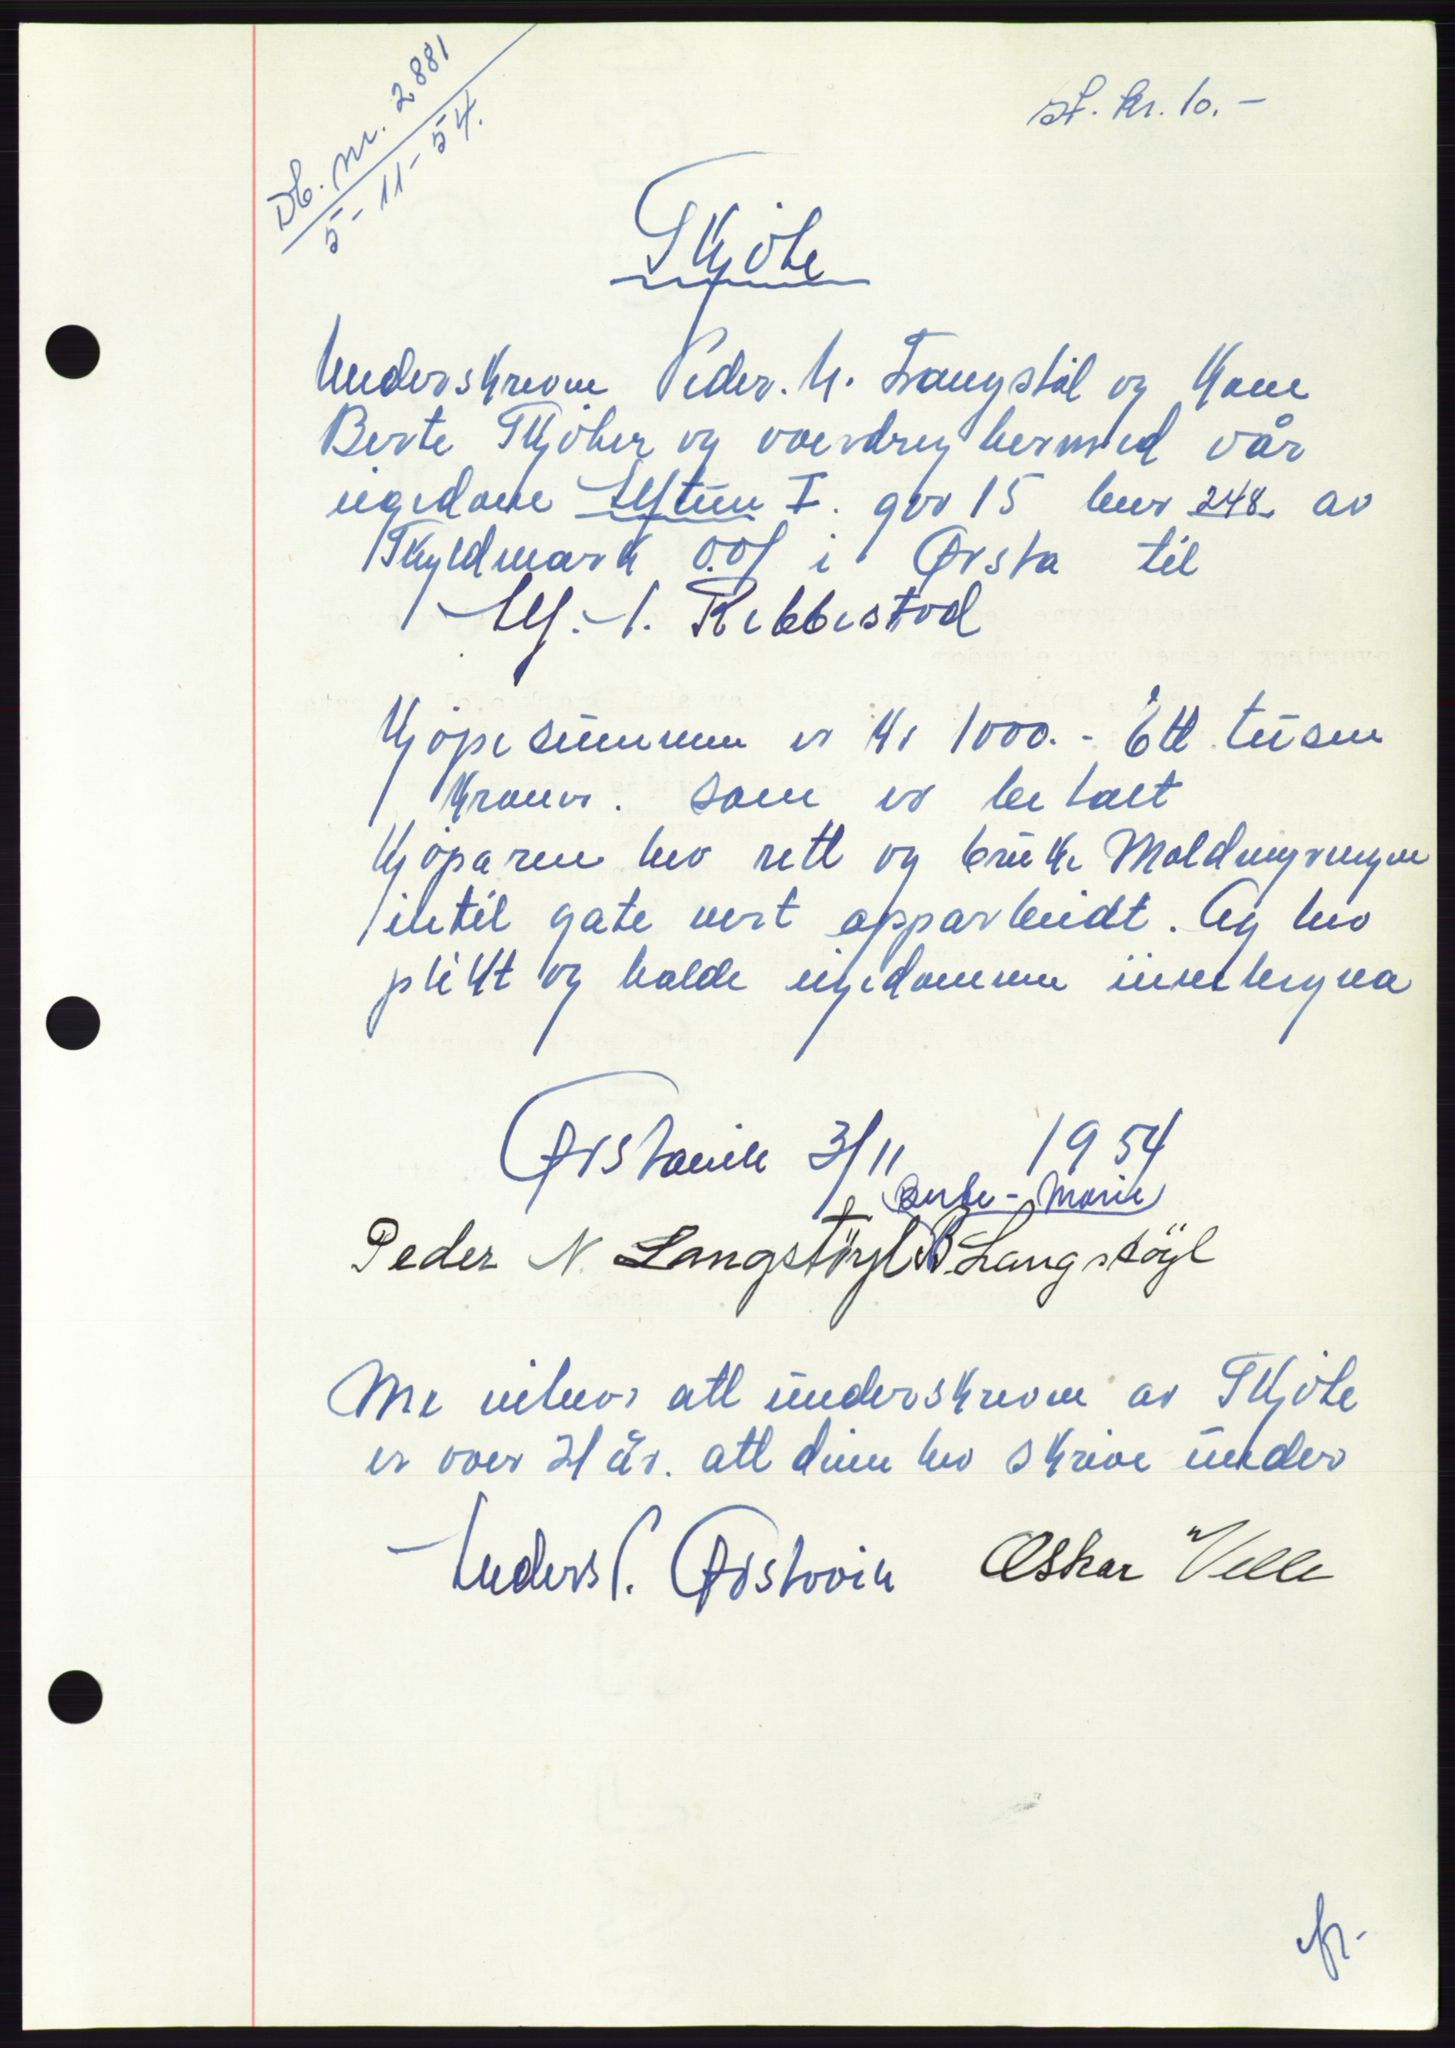 Db. nr. 2881
5-11-54.
st. kr. 10.-
Skjöte
Underskrevne Peder. N. Langstöl og Kone
Berte Skjöter og overdreg hermed vår
eigedom Alftun I. gnr 15 bnr 248 av
Skyldmark 0.01 i Ørsta til
Alf. A. Ribbestod
Kjöpesummen er Kr 1000.- Ett tusen
Kroner. som er betalt
Kjöparen hev rett og bruke
intil gate vert opparbeidt. Og hev
plikt og halde eigedommen innhegna
Ørstavik 3/11 1954
Berte-Marie
Peder N. Langstöyl B Langstöyl
Me vitner att underskrevne av Skjöte
er over 21 år. att dinn hev skrive under
Anders P. Ørstavik Oskar Velle